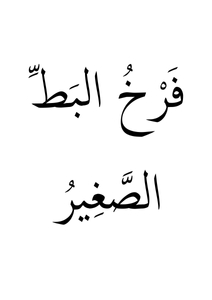 فَرْخُ البَطِّ
الصَّغِيرُ